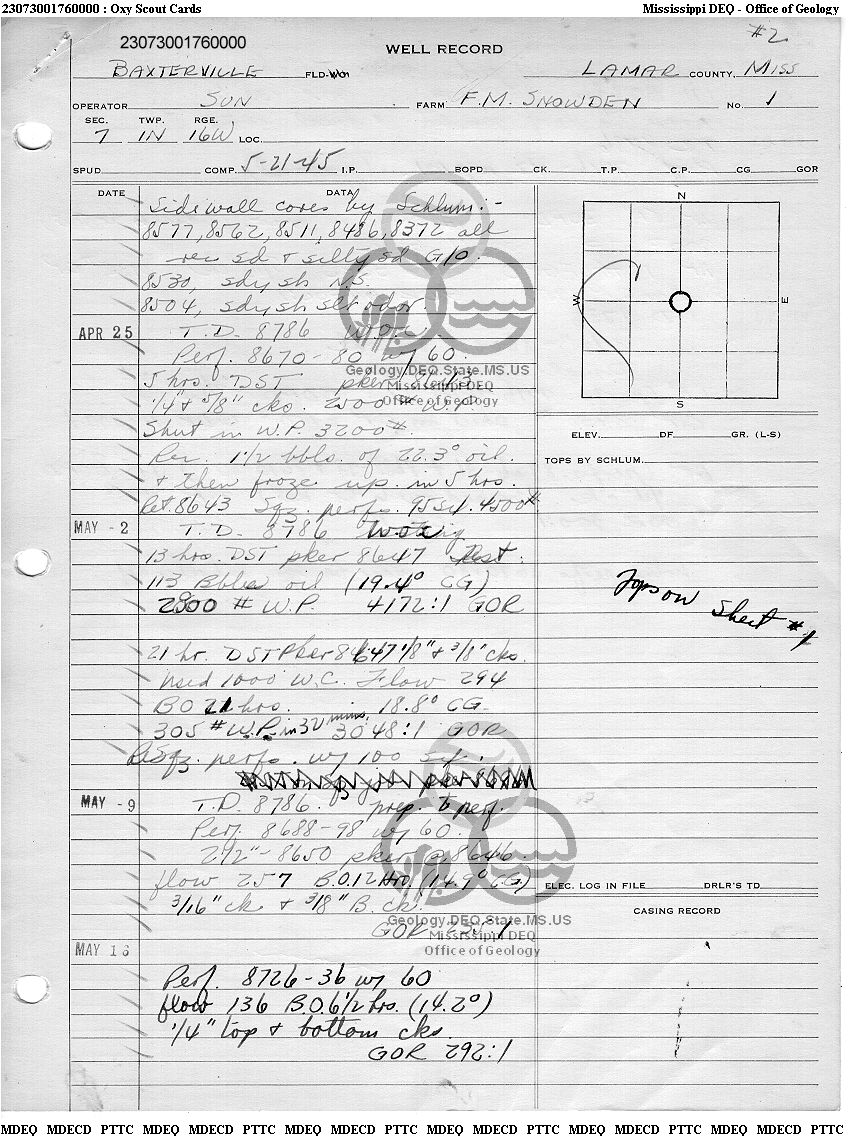 23073001760000 : Oxy Scout Cards
Mississippi DEQ - Office of Geology
23073001760000
#2
WELL RECORD
BAXTERVILLE FLD.
LAMAR COUNTY, MISS
OPERATOR SUN FARM F.M. SNOWDEN No. 1
SEC. TWP. RGE.
7 1N 16W LOC.
SPUD COMP. 5-21-45 I.P. BOPD CK. T.P. C.P. CG GOR
DATE DATA
Sidewall cores by Schlum:-
8577, 8562, 8511, 8486, 8372 all
rec sd & silty sd G/O.
8530, sdy sh N.S.
8504, sdy sh slt odor.
APR 25 T.D. 8786
Perf. 8670-80 w/ 60.
5 hrs. DST pker
1/4" & 5/8" cks. 2500 # W.P.
Shut in W.P. 3200#.
Rec. 1 1/2 bbls. of 22.3° oil.
& then froze up in 5 hrs.
Ret. 8643 Sqz. perfs. 95 sx. 4500#
MAY - 2 T.D. 8786
13 hrs. DST pker 8647
113 Bbls oil (19.4° CG)
2800 # W.P. 4172:1 GOR
21 hr. DST Pker 8647 1/8" & 3/8" cks.
used 1000 W.C. Flow 294
BO 21 hrs. 18.8° CG
305 # W.P. in 30 mins. 3048:1 GOR
ReSqz. perfs. w/ 100 sx.
MAY - 9 T.D. 8786. prep. to perf.
Perf. 8688-98 w/ 60.
2 1/2"-8650 pker @ 8646.
flow 257 B.O. 12 Hrs. (14.9° CG)
3/16" ck & 3/8" B. ck
GOR
MAY 16
Perf. 8726-36 w/ 60
flow 136 B.O. 6 1/2 hrs. (14.2°)
1/4" top & bottom cks.
GOR 292:1
N
W
E
S
ELEV. DF GR. (L-S)
TOPS BY SCHLUM.
Tops on Sheet #1
ELEC. LOG IN FILE DRLR'S TD
CASING RECORD
Geology.DEQ.State.MS.US
Mississippi DEQ
Office of Geology
Geology.DEQ.State.MS.US
Mississippi DEQ
Office of Geology
MDEQ MDECD PTTC MDEQ MDECD PTTC MDEQ MDECD PTTC MDEQ MDECD PTTC MDEQ MDECD PTTC MDEQ MDECD PTTC